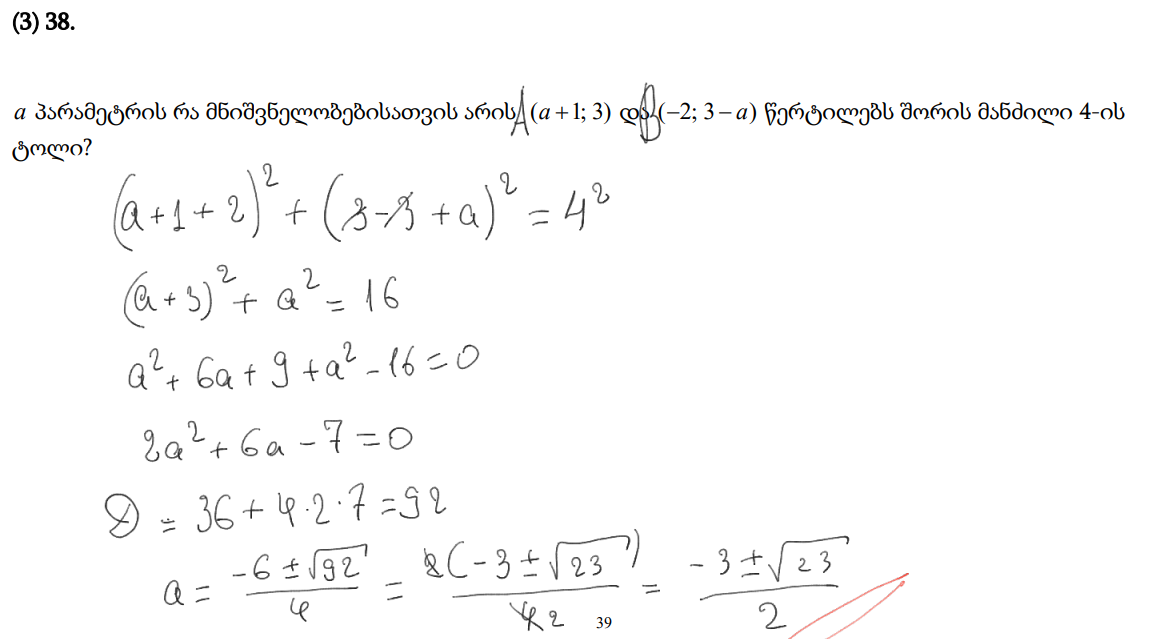 (3) 38.
a პარამეტრის რა მნიშვნელობებისათვის არის A(a + 1; 3) და B(−2; 3 − a) წერტილებს შორის მანძილი 4-ის
ტოლი?
(a+1+2)² + (3-3+a)² = 4²
(a+3)² + a² = 16
a² + 6a + 9 + a² - 16 = 0
2a² + 6a - 7 = 0
D = 36 + 4·2·7 = 92
a = (-6 ± √92)/4 = 2(-3 ± √23)/4 2 = (-3 ± √23)/2
39